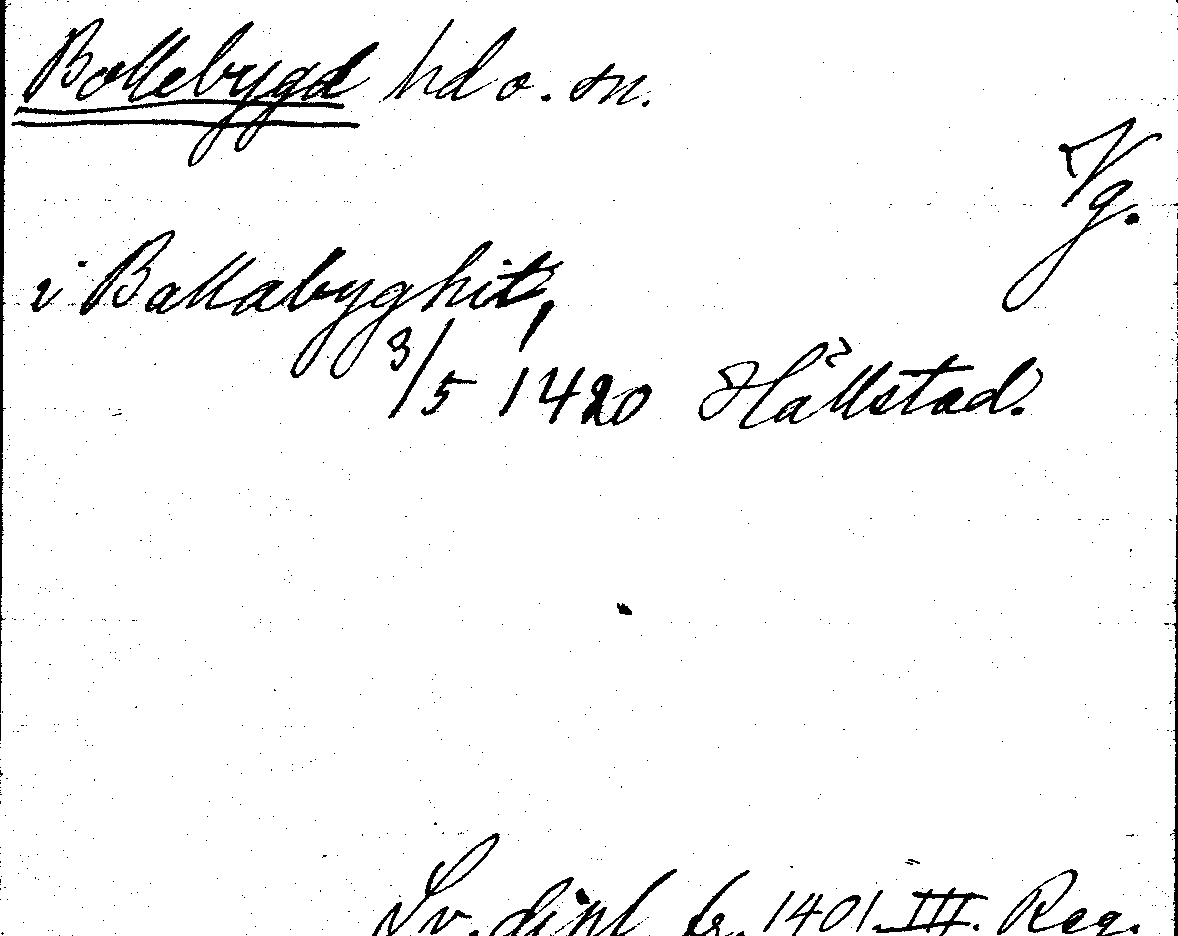 Bollebygd hd o. sn.
Vg.
i Ballabyghit,
3/5 1420 Hållstad.
Sv. dipl fr. 1401 III. Reg.